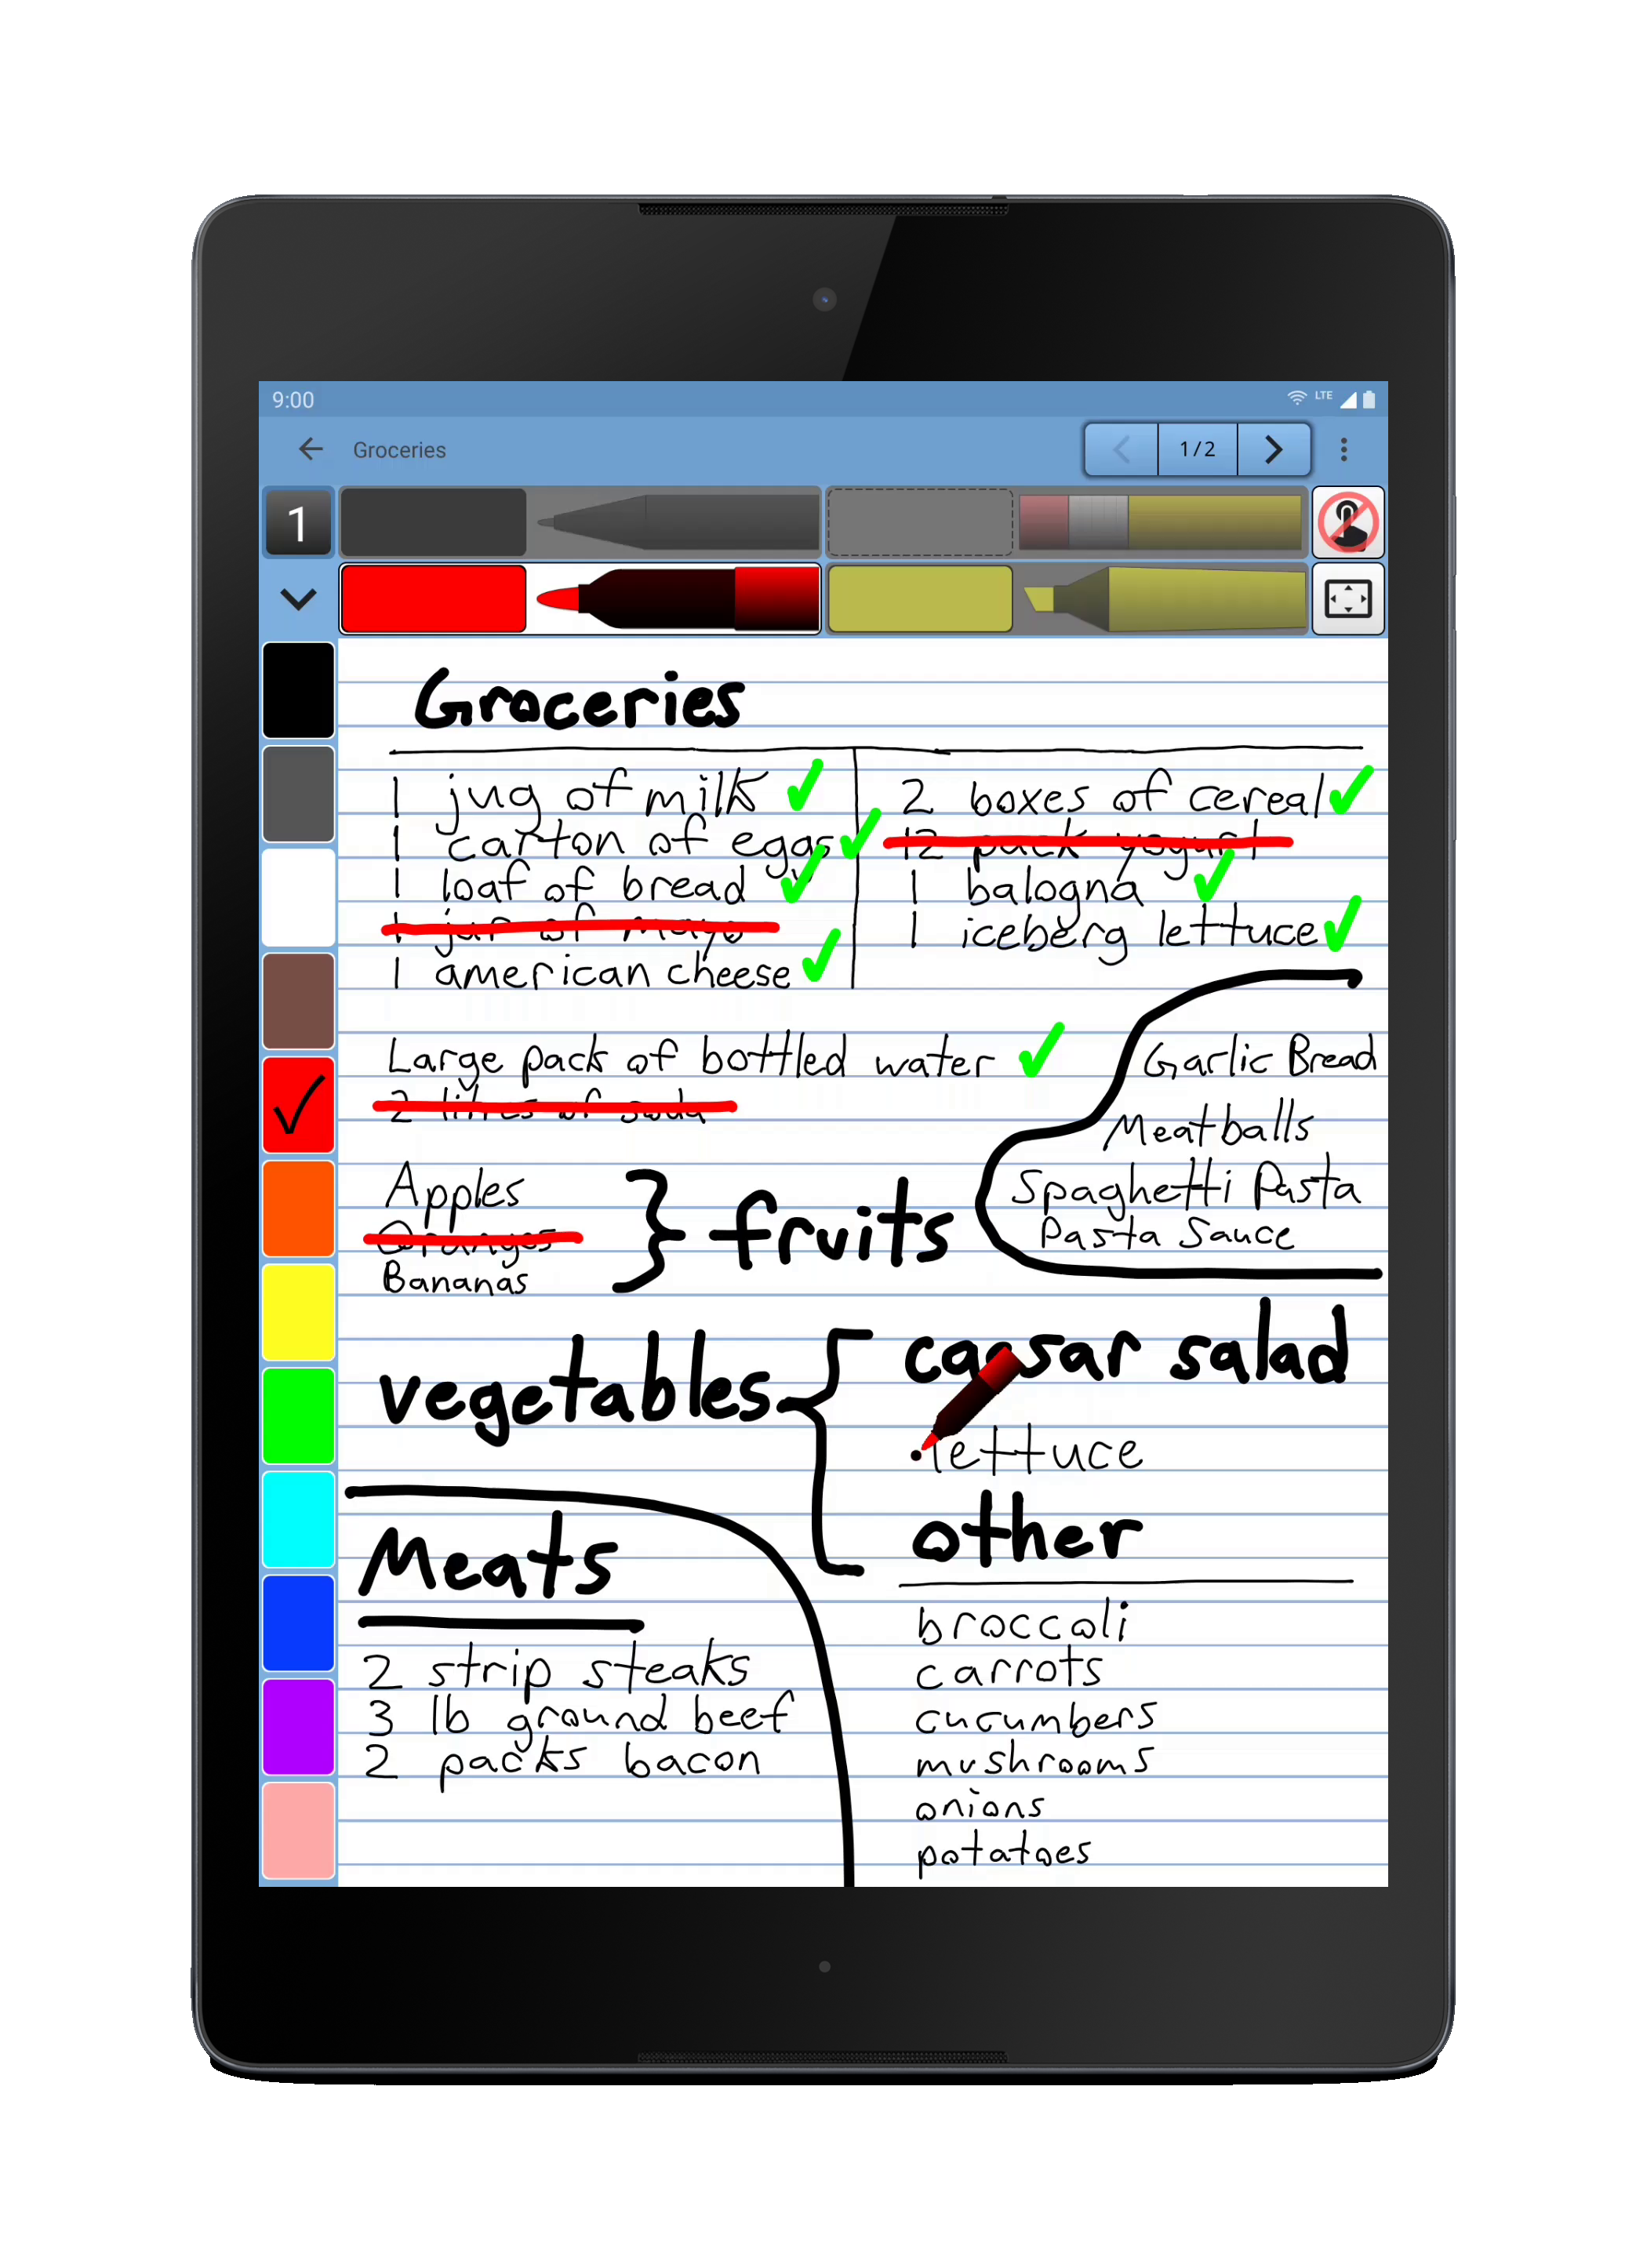 9:00
LTE
Groceries
1/2
1
Groceries
1 jug of milk
1 carton of eggs
1 loaf of bread
1 jar of mayo
1 american cheese
2 boxes of cereal
12 pack yogurt
1 balogna
1 iceberg lettuce
Large pack of bottled water
2 litres of soda
Garlic Bread
Meatballs
Spaghetti Pasta
Pasta Sauce
Apples
Oranges
Bananas
} fruits
vegetables {
caesar salad
•lettuce
other
broccoli
carrots
cucumbers
mushrooms
onions
potatoes
Meats
2 strip steaks
3 lb ground beef
2 packs bacon